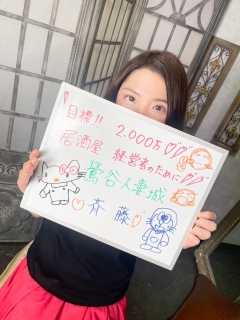 目標!! 2.000万
居酒屋 経営者のために
鶯谷人妻城
斉藤